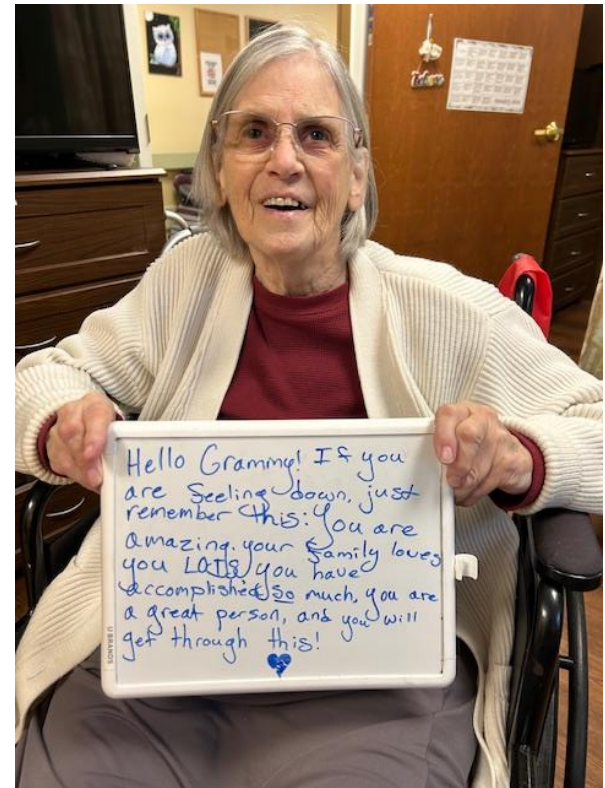 Hello Grammy! If you
are feeling down, just
remember this: You are
amazing. your family loves
you LOTS, you have
accomplished so much, you are
a great person, and you will
get through this!
U BRANDS